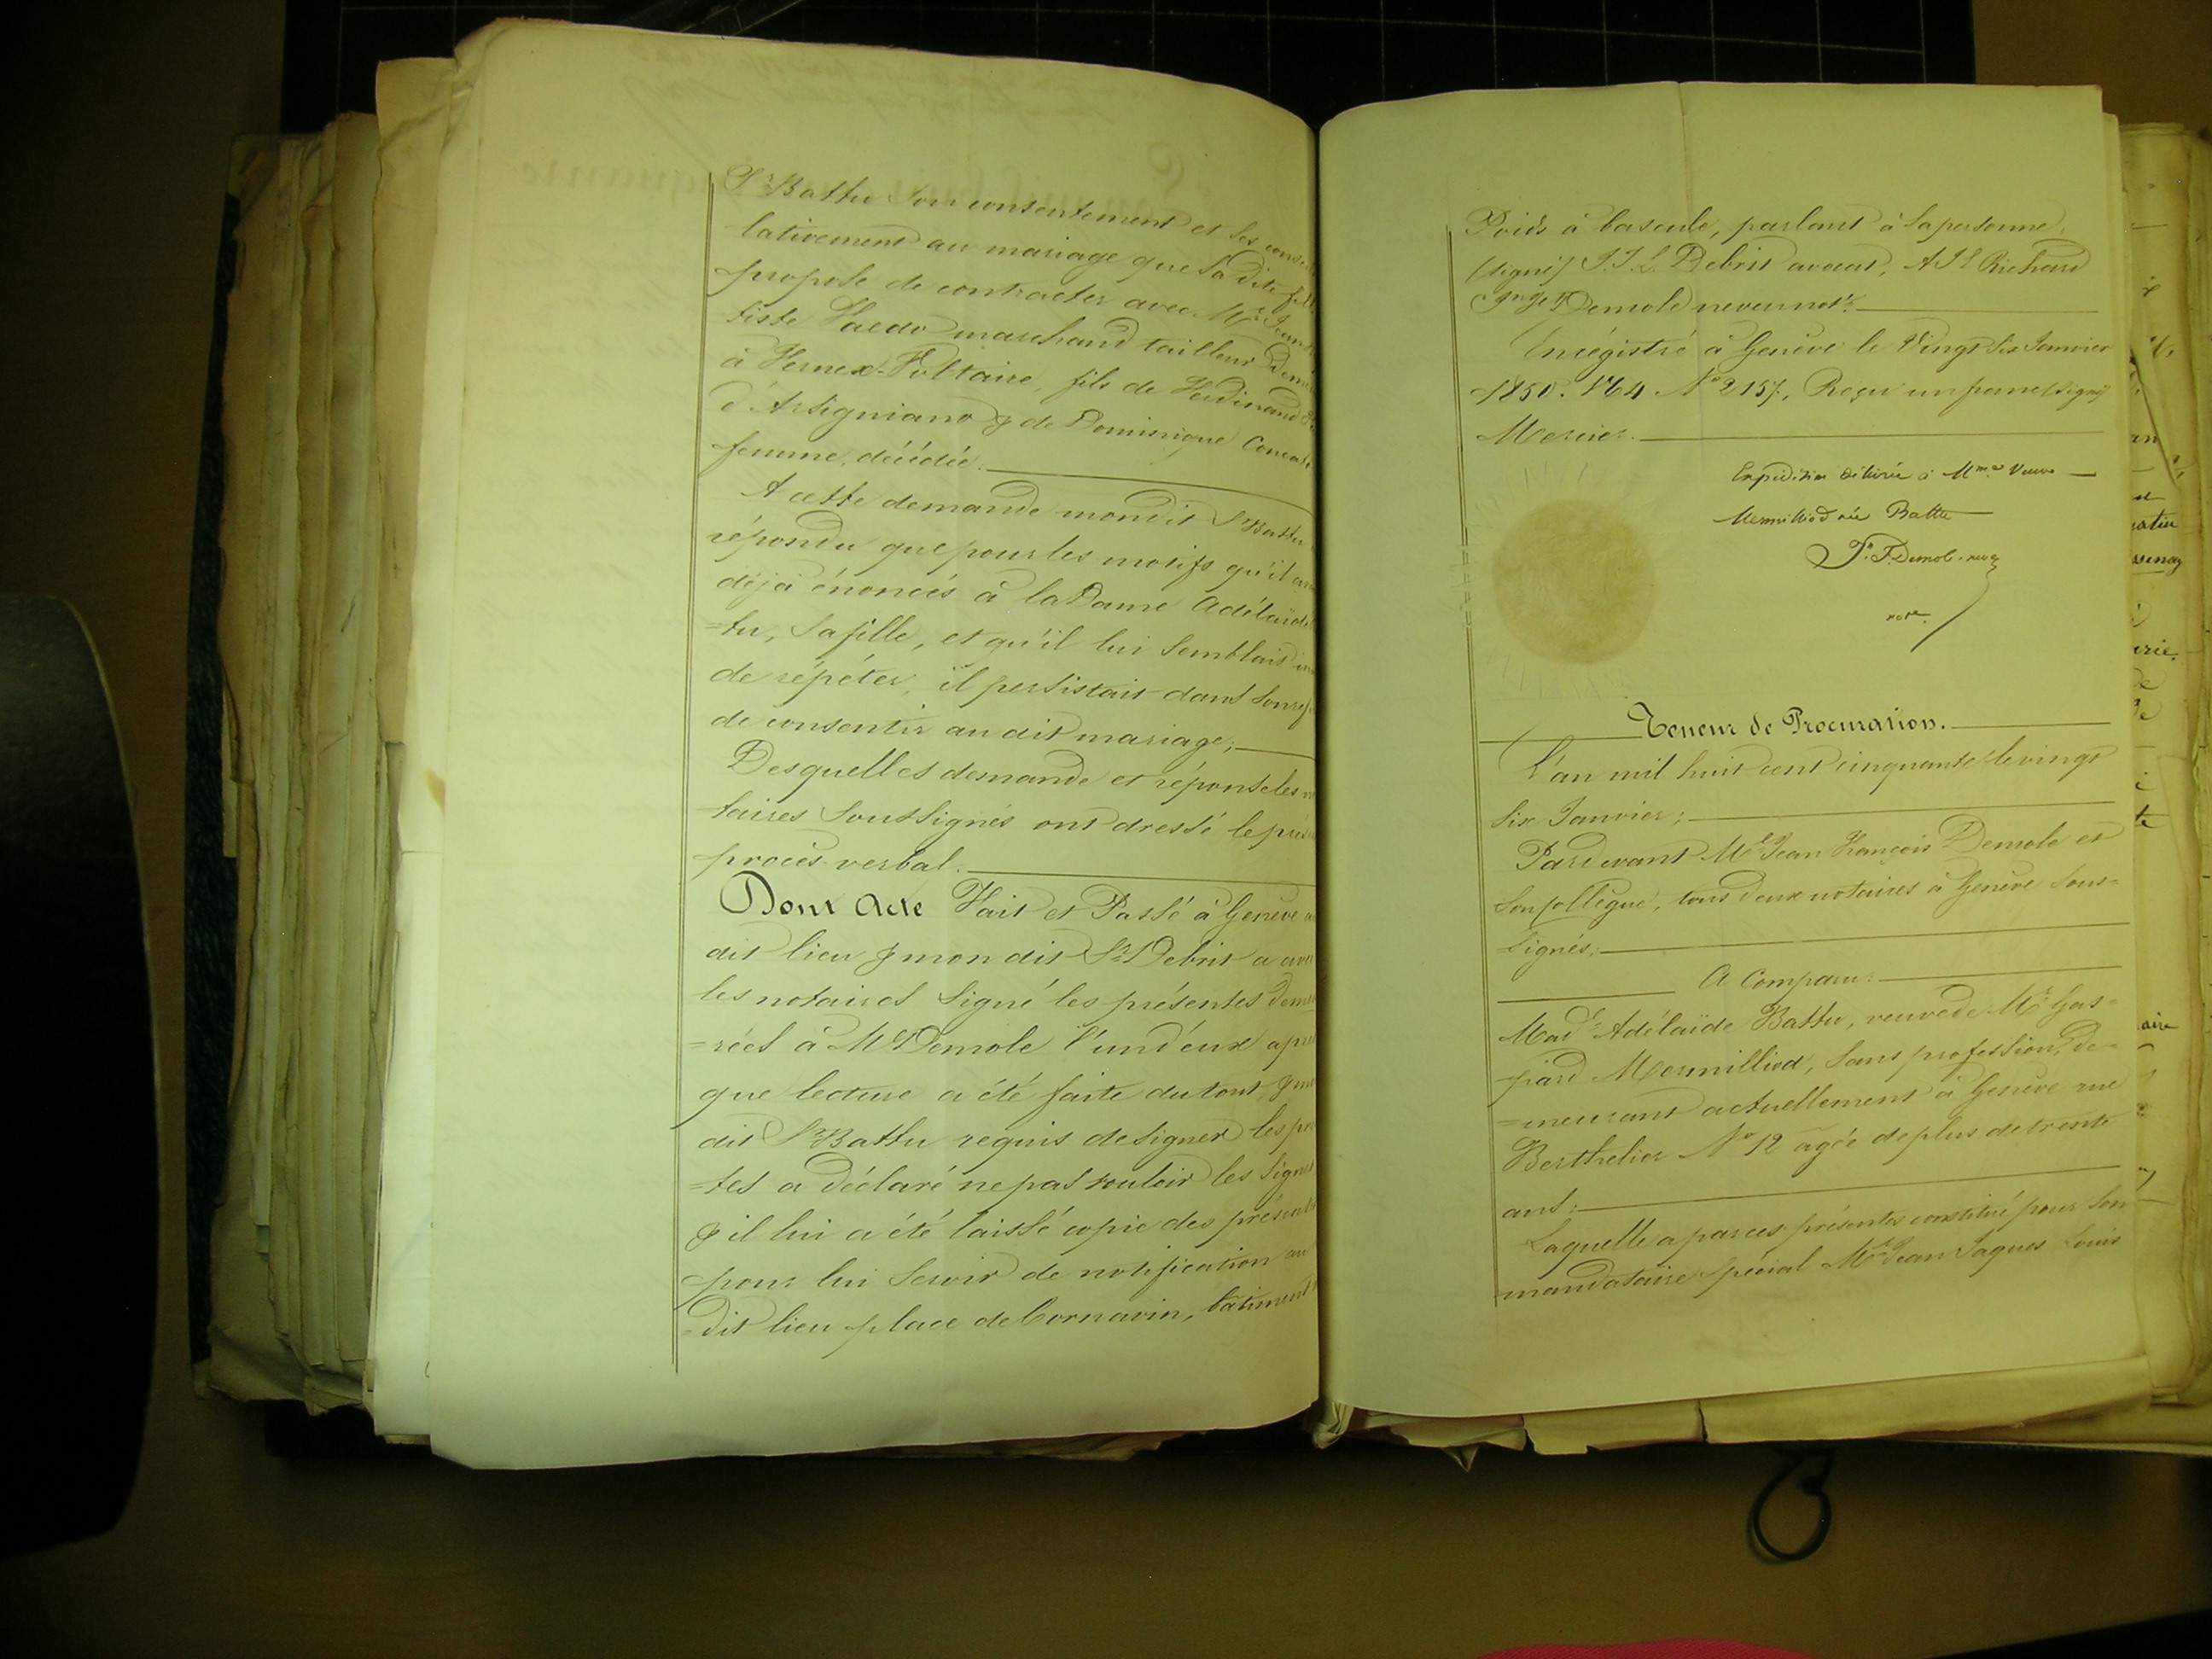 Sr. Battu son consentement et ses conse
lativement au mariage que sa dite fille
propose de contracter avec Mr. Jean
tiste Valdo marchand tailleur dem
à Fernex-Voltaire, fils de Ferdinand
d'Arsigniano & de Dominique
femme, décédée.
A cette demande mondit Sr. Battu
répondu que pour les motifs qu'il av
déjà énoncés à la Dame Adélaïde
=tu, sa fille, et qu'il lui semblait in
de répéter, il persistait dans son ref
de consentir au dit mariage;
Desquelles demande et réponse les n
taires soussignés ont dressé le prés
procès-verbal.
Dont Acte Fait et Passé à Genève a
dit lieu & mon dit Sr. Debrit a ave
les notaires signé les présentes deme
=rées à Me Demole l'un d'eux aprè
que lecture a été faite du tout, & mo
dit Sr. Battu requis de signer les pr
=tes a déclaré ne pas vouloir les signer
& il lui a été laissé copie des présente
pour lui servir de notification au
=dit lieu place de Cornavin, bâtiment
Poids à bascule, parlant à sa personne.
(signé) J. J. L. Debrit avocat, A Richard
Demole neveu notre.
Enrégistré à Genève le Vingt six Janvier
1850. No 2157, Reçu un franc (signé)
Mercier.
Expédition délivrée à Mme Veuve
Mermilliod née Battu
J. F. Demole neveu
notre.
Teneur de Procuration.
L'an mil huit cent cinquante le vingt
six Janvier;
Pardevant Me Jean François Demole et
son collègue, tous deux notaires à Genève sous=
signés;
A Comparu:
Made. Adélaïde Battu, veuve de Mr. Gas=
pard Mermilliod, sans profession, de=
=meurant actuellement à Genève rue
Berthelier No 12 agée de plus de trente
ans;
Laquelle a par ces présentes constitué pour son
mandataire spécial Mr. Jean Jaques Louis